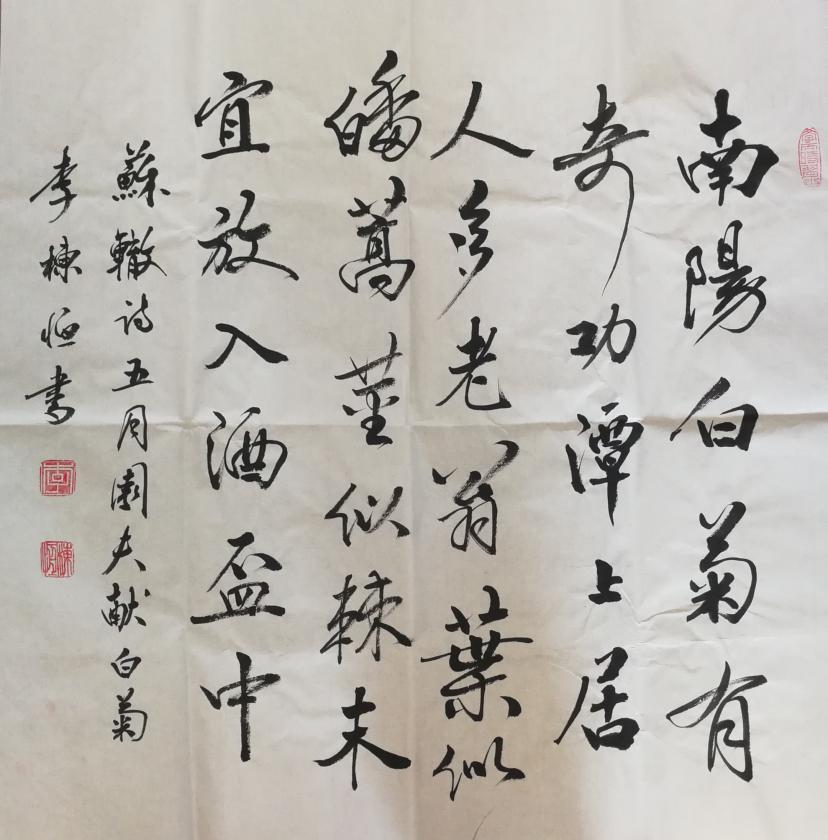 南陽白菊有
奇功潭上居
人多老翁葉似
皤蒿莖似棘末
宜放入酒盃中
蘇轍诗五月園夫献白菊
李棟恒书